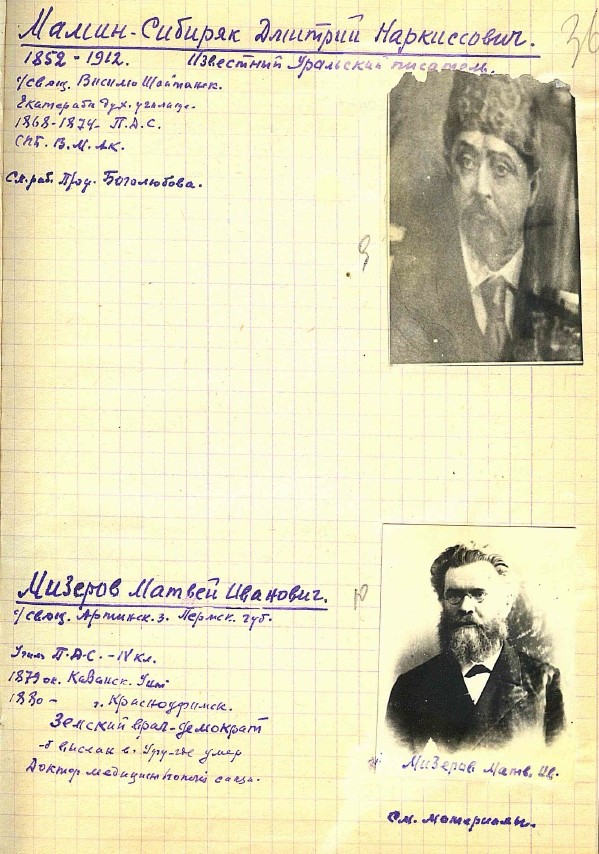 Мамин-Сибиряк Дмитрий Наркиссович.
36
1852 - 1912. Известный Уральский писатель.
с/свящ. Висимо Шайтанск.
Екатеринб. дух. училище.
1868-1874- П.Д.С.
СПб. В.М. Ак.
См. раб. Проф. Боголюбова.
Мизеров Матвей Иванович.
с/свящ. Артинск. з. Пермск. губ.
П.Д.С. - IV кл.
1879 ок. Казанск. Унив
1880 - г. Красноуфимск.
Земский врач-демократ
выслан в. где умер
Доктор медицины
Мизеров Матв. Ив.
См. материалы.